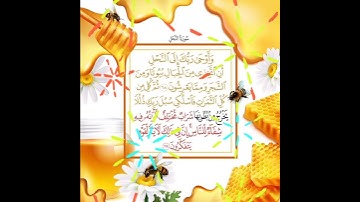 سورة النحل
وَأَوْحَىٰ رَبُّكَ إِلَى النَّحْلِ
أَنِ اتَّخِذِي مِنَ الْجِبَالِ بُيُوتًا وَمِنَ
الشَّجَرِ وَمِمَّا يَعْرِشُونَ ثُمَّ كُلِي مِن
كُلِّ الثَّمَرَاتِ فَاسْلُكِي سُبُلَ رَبِّكِ ذُلُلًا
يَخْرُجُ مِن بُطُونِهَا شَرَابٌ مُّخْتَلِفٌ أَلْوَانُهُ فِيهِ
شِفَاءٌ لِّلنَّاسِ إِنَّ فِي ذَٰلِكَ لَآيَةً لِّقَوْمٍ
يَتَفَكَّرُونَ